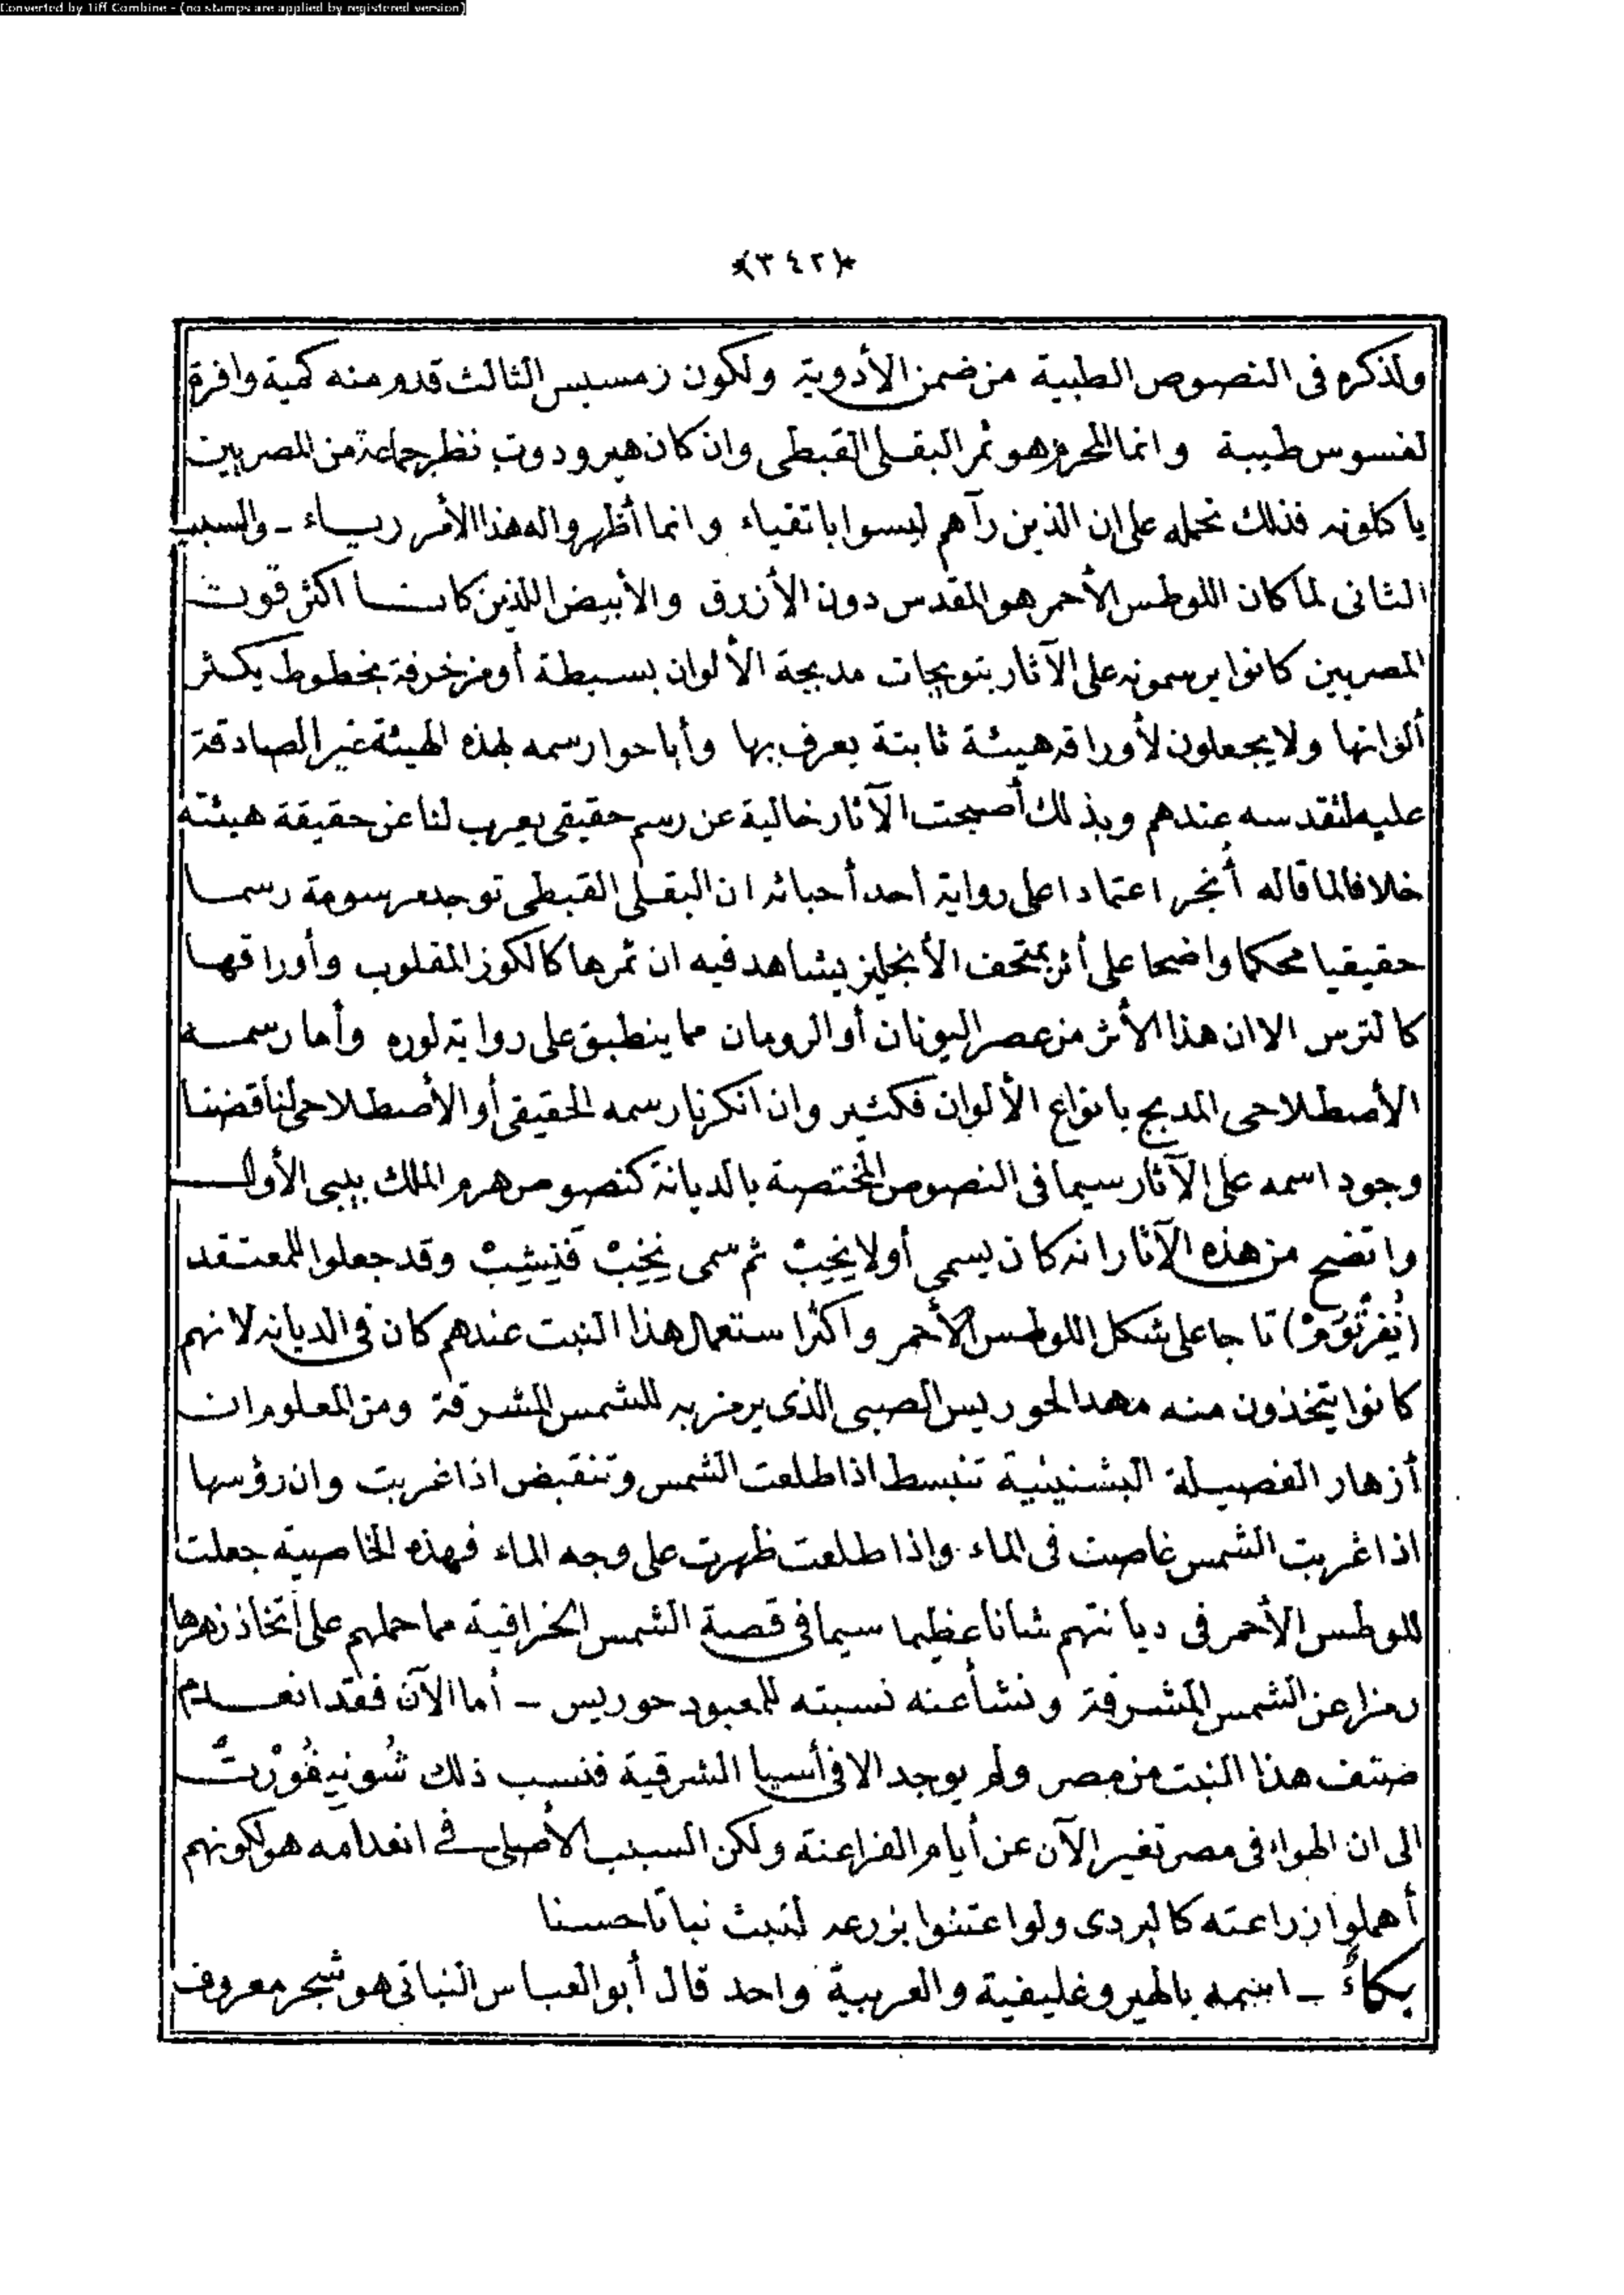 Converted by Tiff Combine - (no stamps are applied by registered version)
*(٣٤٢)*
ولذكره فى النصوص الطبية من ضمن الأدوية ولكون رمسيس الثالث قدم منه كمية وافرة
لقسوس طيبة وانما المحرم هو ثمر البقلى القبطى وان كان هيرودوت نظر جماعة من المصريين
ياكلونه فذلك نحمله على ان الذين رآهم ليسوا باتقياء وانما أظهروا له هذا الأمر رياء - والسبب
الثانى لما كان اللوطس الأحمر هو المقدس دون الأزرق والأبيض اللذين كانا أكثر قوت
المصريين كانوا يرسمونه على الآثار بتويجات مدبجة الألوان بسيطة أو مزخرفة بخطوط يكثر
ألوانها ولا يجعلون لأوراقه هيئة ثابتة يعرف بها وأباحوا رسمه بهذه الهيئة غير الصادقة
عليه لتقدسه عندهم وبذلك أصبحت الآثار خالية عن رسم حقيقى يعرب لنا عن حقيقة هيئته
خلافا لما قاله أنجر اعتمادا على رواية أحد أحبائه ان البقلى القبطى توجد مرسومة رسما
حقيقيا محكما واضحا على أثر بمتحف الأنجليز يشاهد فيه ان ثمرها كالكوز المقلوب وأوراقها
كالترس الا ان هذا الأثر من عصر اليونان أو الرومان مما ينطبق على رواية لوره وأما رسمه
الأصطلاحى المدبج بانواع الألوان فكثير وان انكرنا رسمه الحقيقى أو الأصطلاحى لناقضنا
وجود اسمه على الآثار سيما فى النصوص المختصة بالديانة كنصوص هرم الملك بيبى الأول
واتضح من هذه الآثار انه كان يسمى أولا نِخِبْ ثم سمى نِخِبْ فَنِشِبْ وقد جعلوا للمعتقد
(نِفِرْتُومْ) تاجا على شكل اللوطس الأحمر وأكثر استعمال هذا النبت عندهم كان فى الديانه لانهم
كانوا يتخذون منه مهدا لحوريس الصبى الذى يرمز به للشمس المشرقة ومن المعلوم ان
أزهار الفصيلة البشنينية تنبسط اذا طلعت الشمس وتنقبض اذا غربت وان رؤسها
اذا غربت الشمس غاصت فى الماء واذا طلعت ظهرت على وجه الماء فهذه الخاصية جعلت
للوطس الأحمر فى ديانتهم شانا عظيما سيما فى قصة الشمس الخرافية مما حملهم على اتخاذ زهرها
رمزا عن الشمس المشرقة ونشأ عنه نسبته للمعبود حوريس - أما الآن فقد انعدم
صنف هذا النبت من مصر ولم يوجد الا فى أسيا الشرقية فنسب ذلك شُونِيفُورْتْ
الى ان الهواء فى مصر تغير الآن عن أيام الفراعنة ولكن السبب الأصلى فى انعدامه هو لكونهم
أهملوا زراعته كالبردى ولو اعتنوا بزرعه لنبت نباتا حسنا
بكاءٌ - اسمه بالهيروغليفية والعربية واحد قال أبو العباس النباتى هو شجر معروف